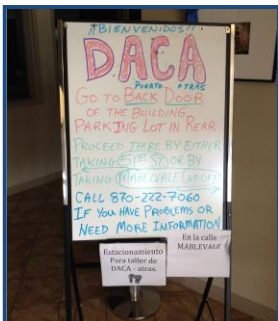 ¡¡BIENVENIDOS!!
DACA
PUERTA ATRAS
GO TO BACK DOOR
OF THE BUILDING
PARKING LOT IN REAR
PROCEED THERE BY EITHER
TAKING 51ST ST OR BY
TAKING MABELVALE CUT OFF
CALL 870-222-7060
IF YOU HAVE PROBLEMS OR
NEED MORE INFORMATION
Estacionamiento
Para taller de
DACA - atras.
En la calle
MABLEVALE